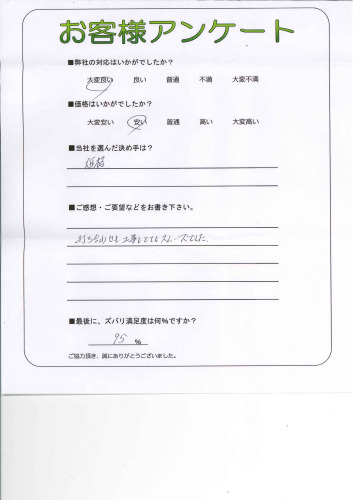 お客様アンケート
■弊社の対応はいかがでしたか？
大変良い 良い 普通 不満 大変不満
■価格はいかがでしたか？
大変安い 安い 普通 高い 大変高い
■当社を選んだ決め手は？
価格
■ご感想・ご要望などをお書き下さい。
打ち合わせも工事もとてもスムーズでした。
■最後に、ズバリ満足度は何%ですか？
95 %
ご協力頂き、誠にありがとうございました。